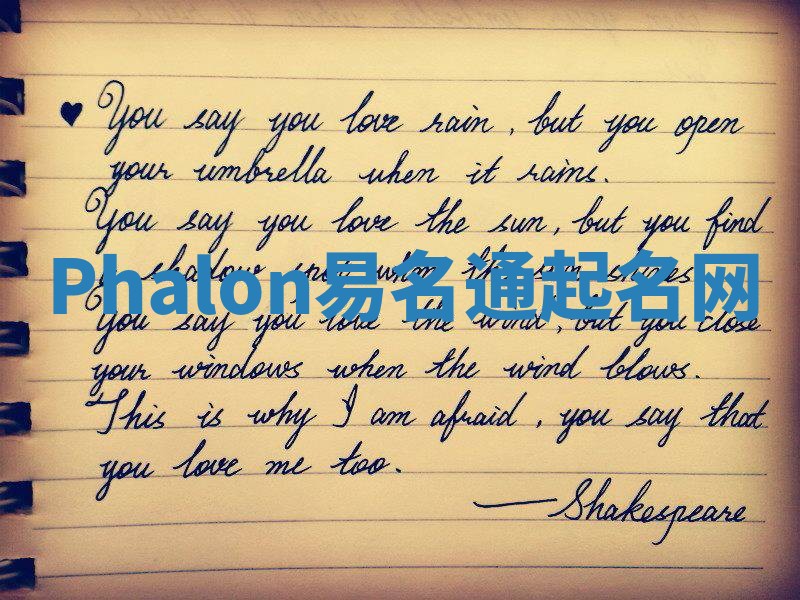 ♥ You say you love rain, but you open
your umbrella when it rains.
You say you love the sun, but you find
a shadow spot when the sun shines
Phalon易名通起名网
You say you love the wind, but you close
your windows when the wind blows.
This is why I am afraid, you say that
you love me too.
—Shakespeare